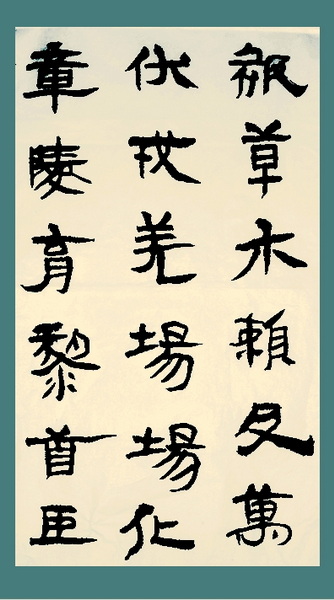 章陵育黎首臣
伏戎羌場場化
被草木賴及萬